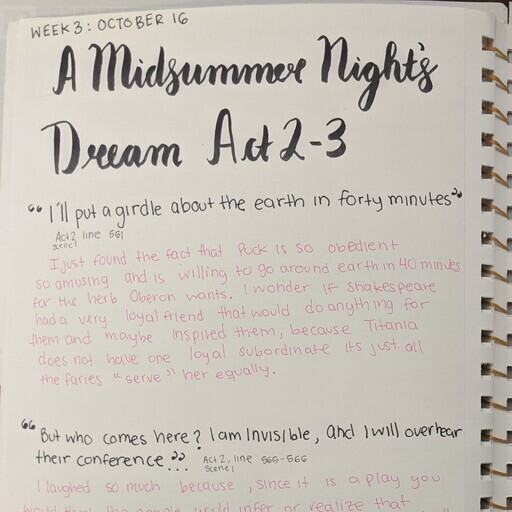 WEEK 3: OCTOBER 16
A Midsummer Night's
Dream Act 2-3
"I'll put a girdle about the earth in forty minutes"
Act 2, line 551
scene 1
I just found the fact that Puck is so obedient
so amusing and is willing to go around earth in 40 minutes
for the herb Oberon wants. I wonder if Shakespeare
had a very loyal friend that would do anything for
them and maybe inspired them, because Titania
does not have one loyal subordinate its just all
the faries "serve" her equally.
"But who comes here? I am Invisible, and I will overhear
their conference"...
Act 2, line 565-566
scene 1
I laughed so much because, since it is a play you
would infer or realize that